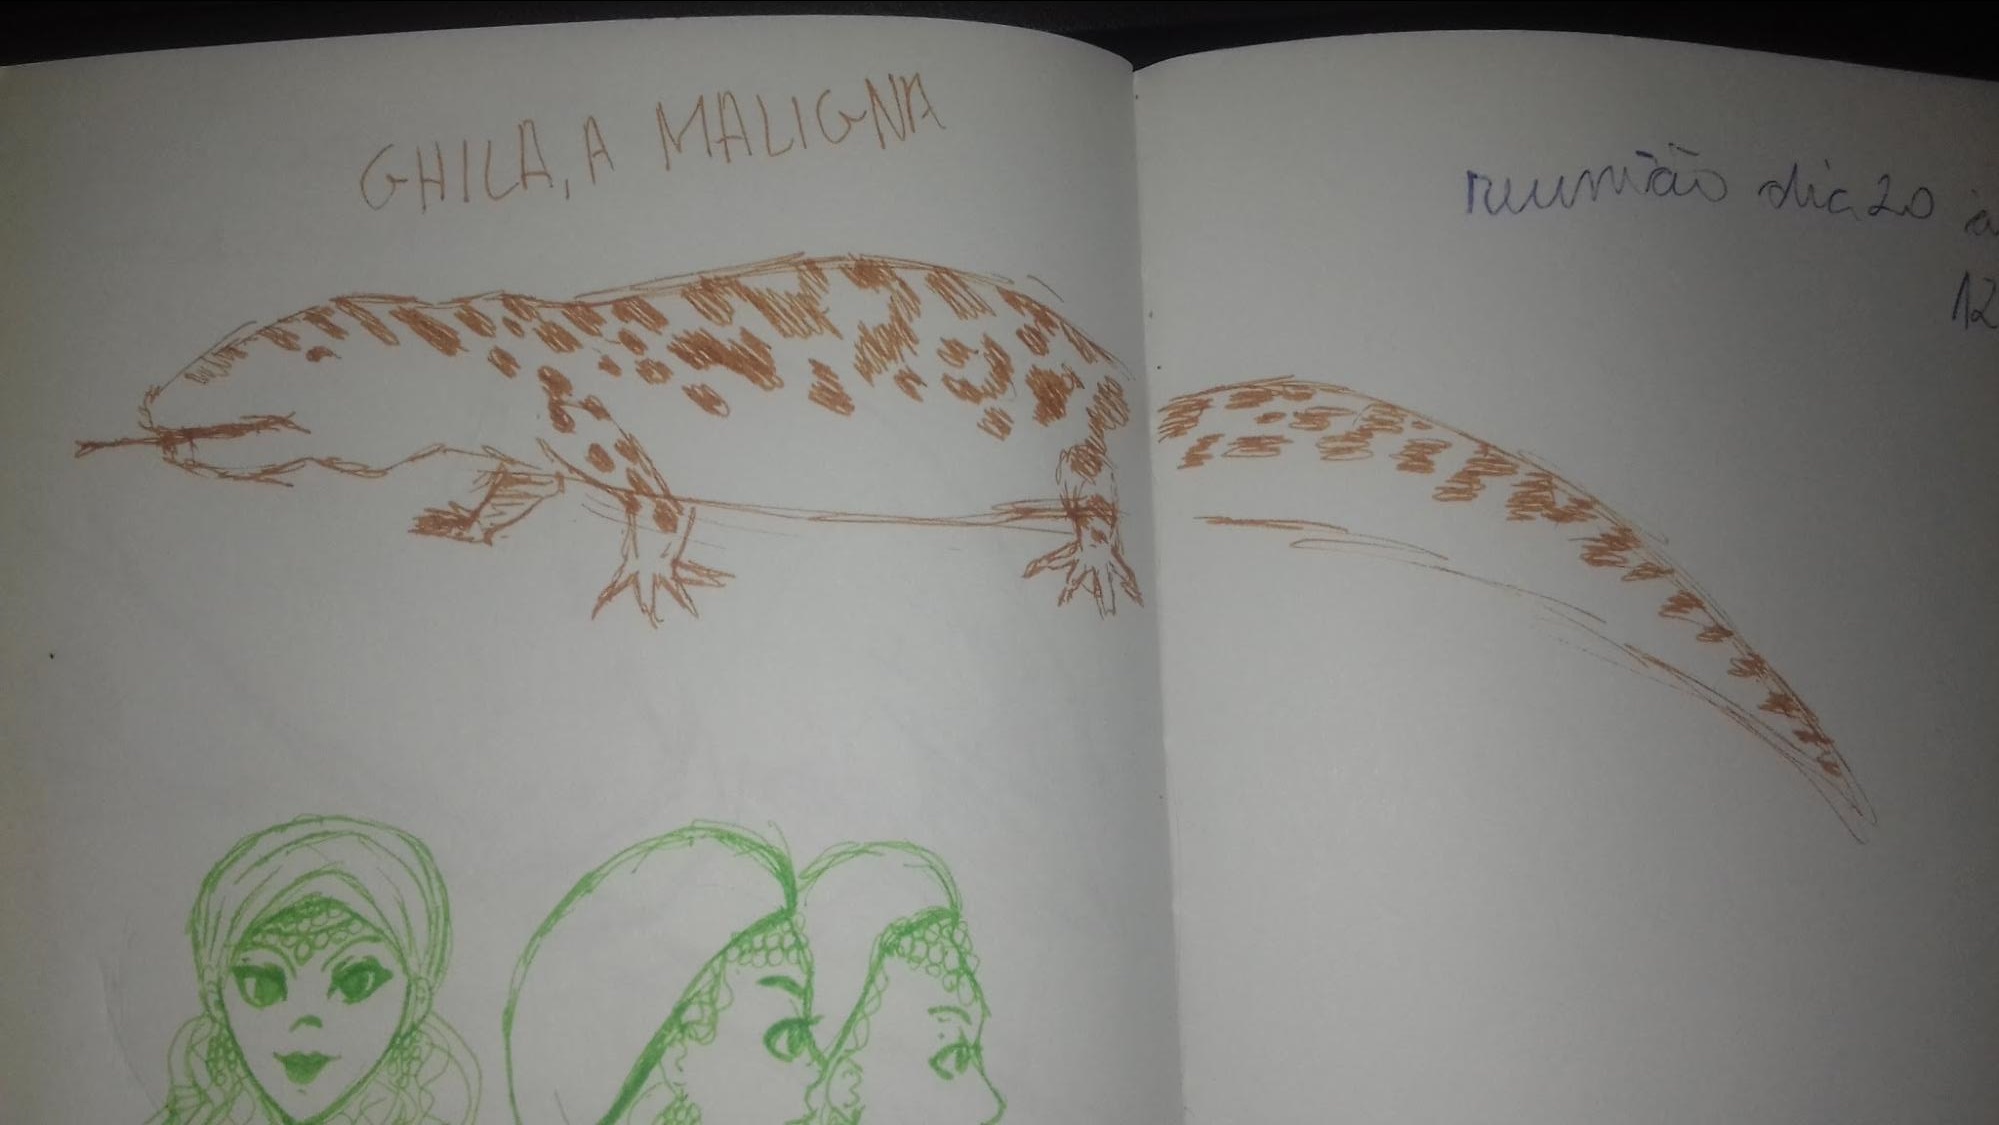 GHILA, A MALIGNA
reunião dia 20 à
12